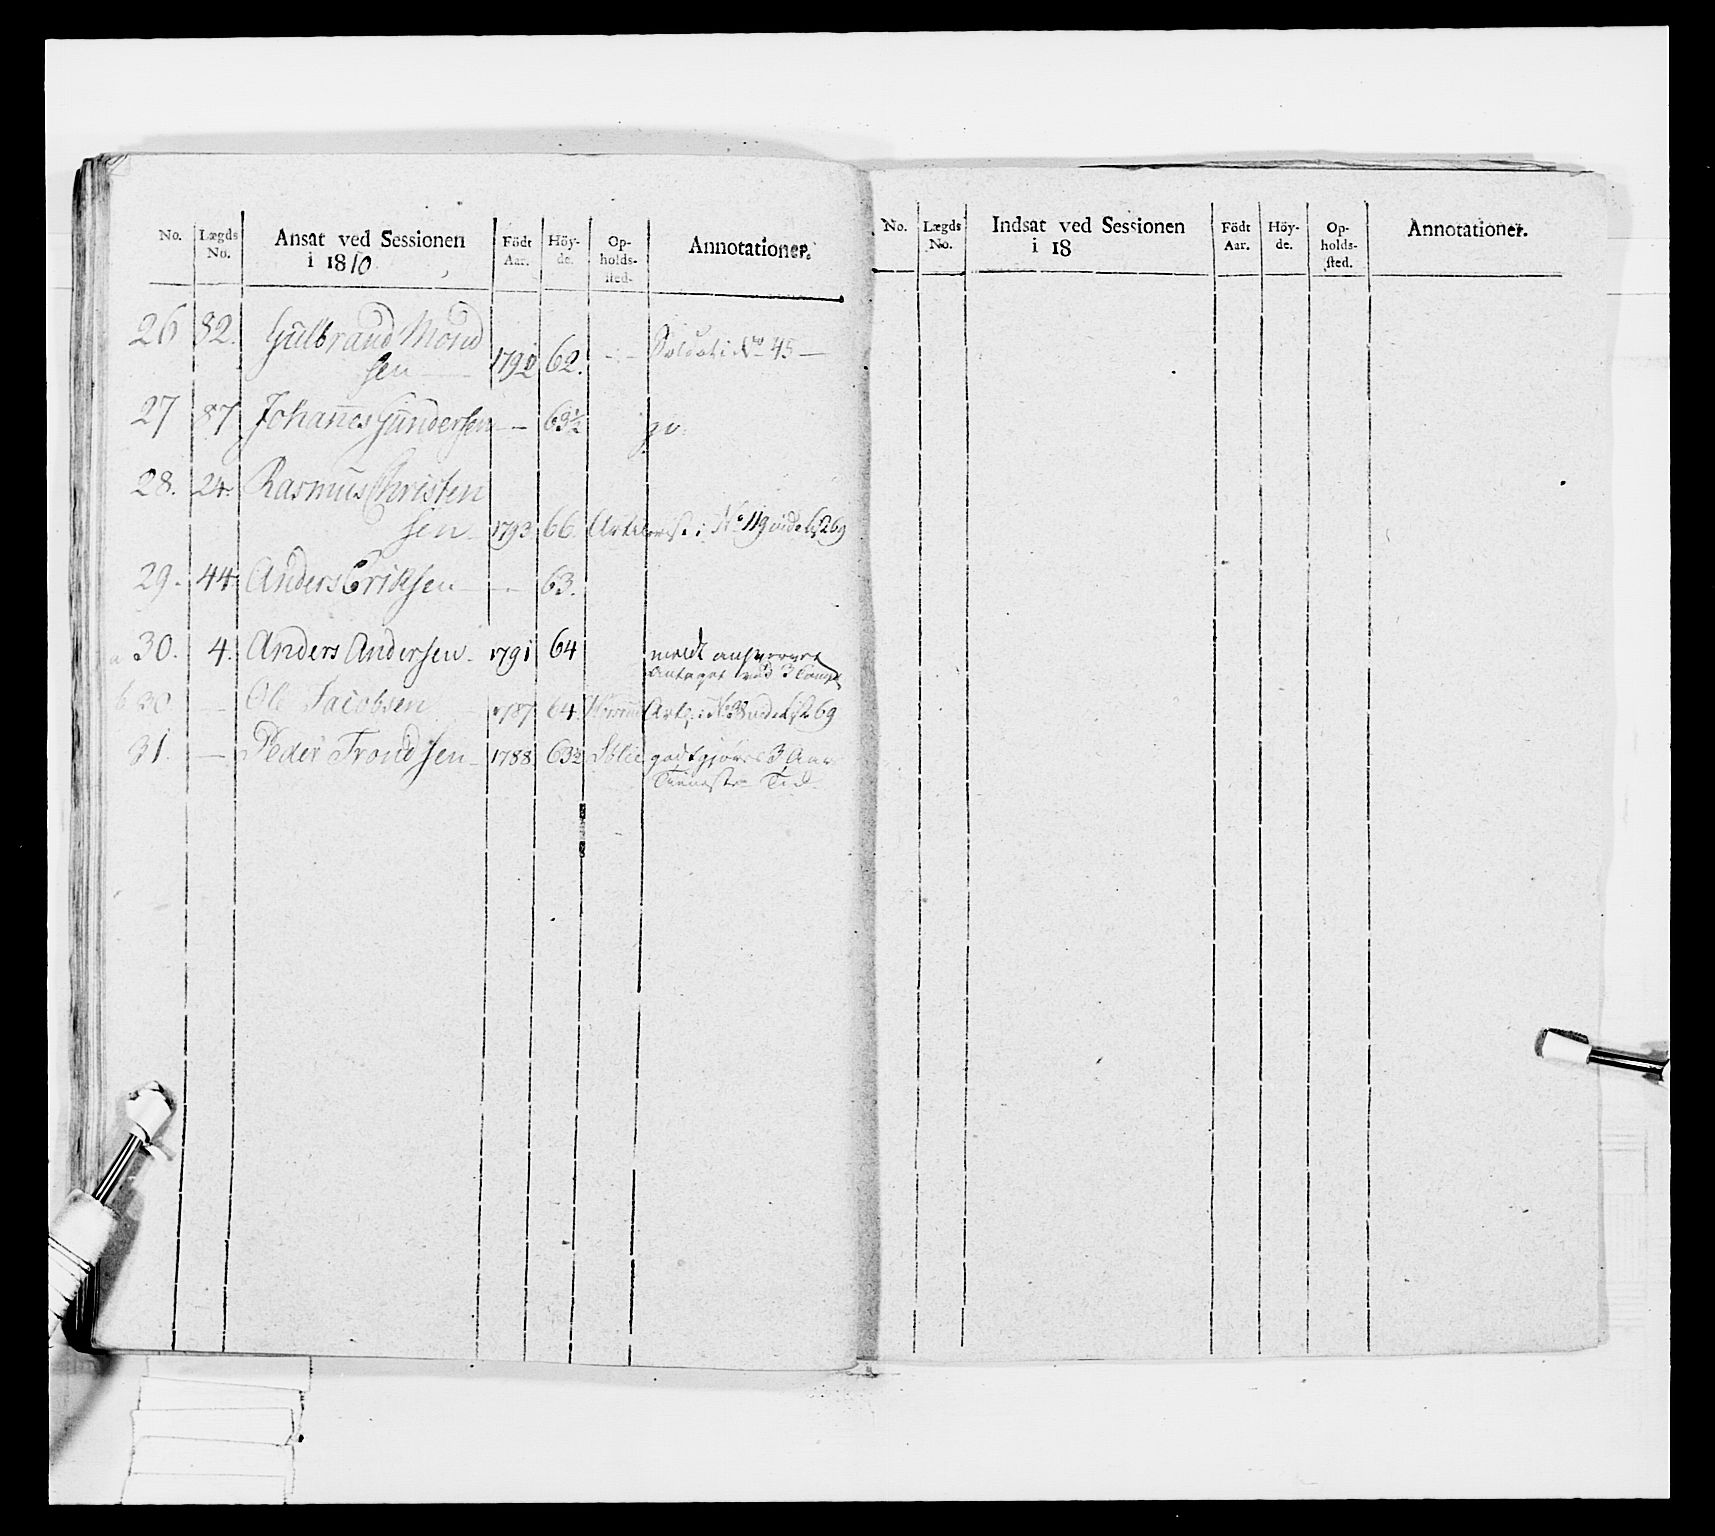 No. Lægds No. Ansat ved Sessionen i 1810 Födt Aar. Höyde. Opholdssted. Annotationer.
26 82. Gulbrand Mond
sen 1792 62. Soldat i No 45 —
27 87 Johannes Gundersen — 63½
28. 24. Rasmus Christen
sen 1793 66 i No 119
29. 44 Anders Eriksen — 63.
a 30. 4. Anders Andersen 1791 64 meldt
Antaget ved 3
b 30 — Ole Jacobsen 1787 64
31. — Peder Trondsen 1788 63½ godtgjøres 3 Aar
Tieneste Tid
No. Lægds No. Indsat ved Sessionen i 18 Födt Aar. Höyde. Opholdssted. Annotationer.